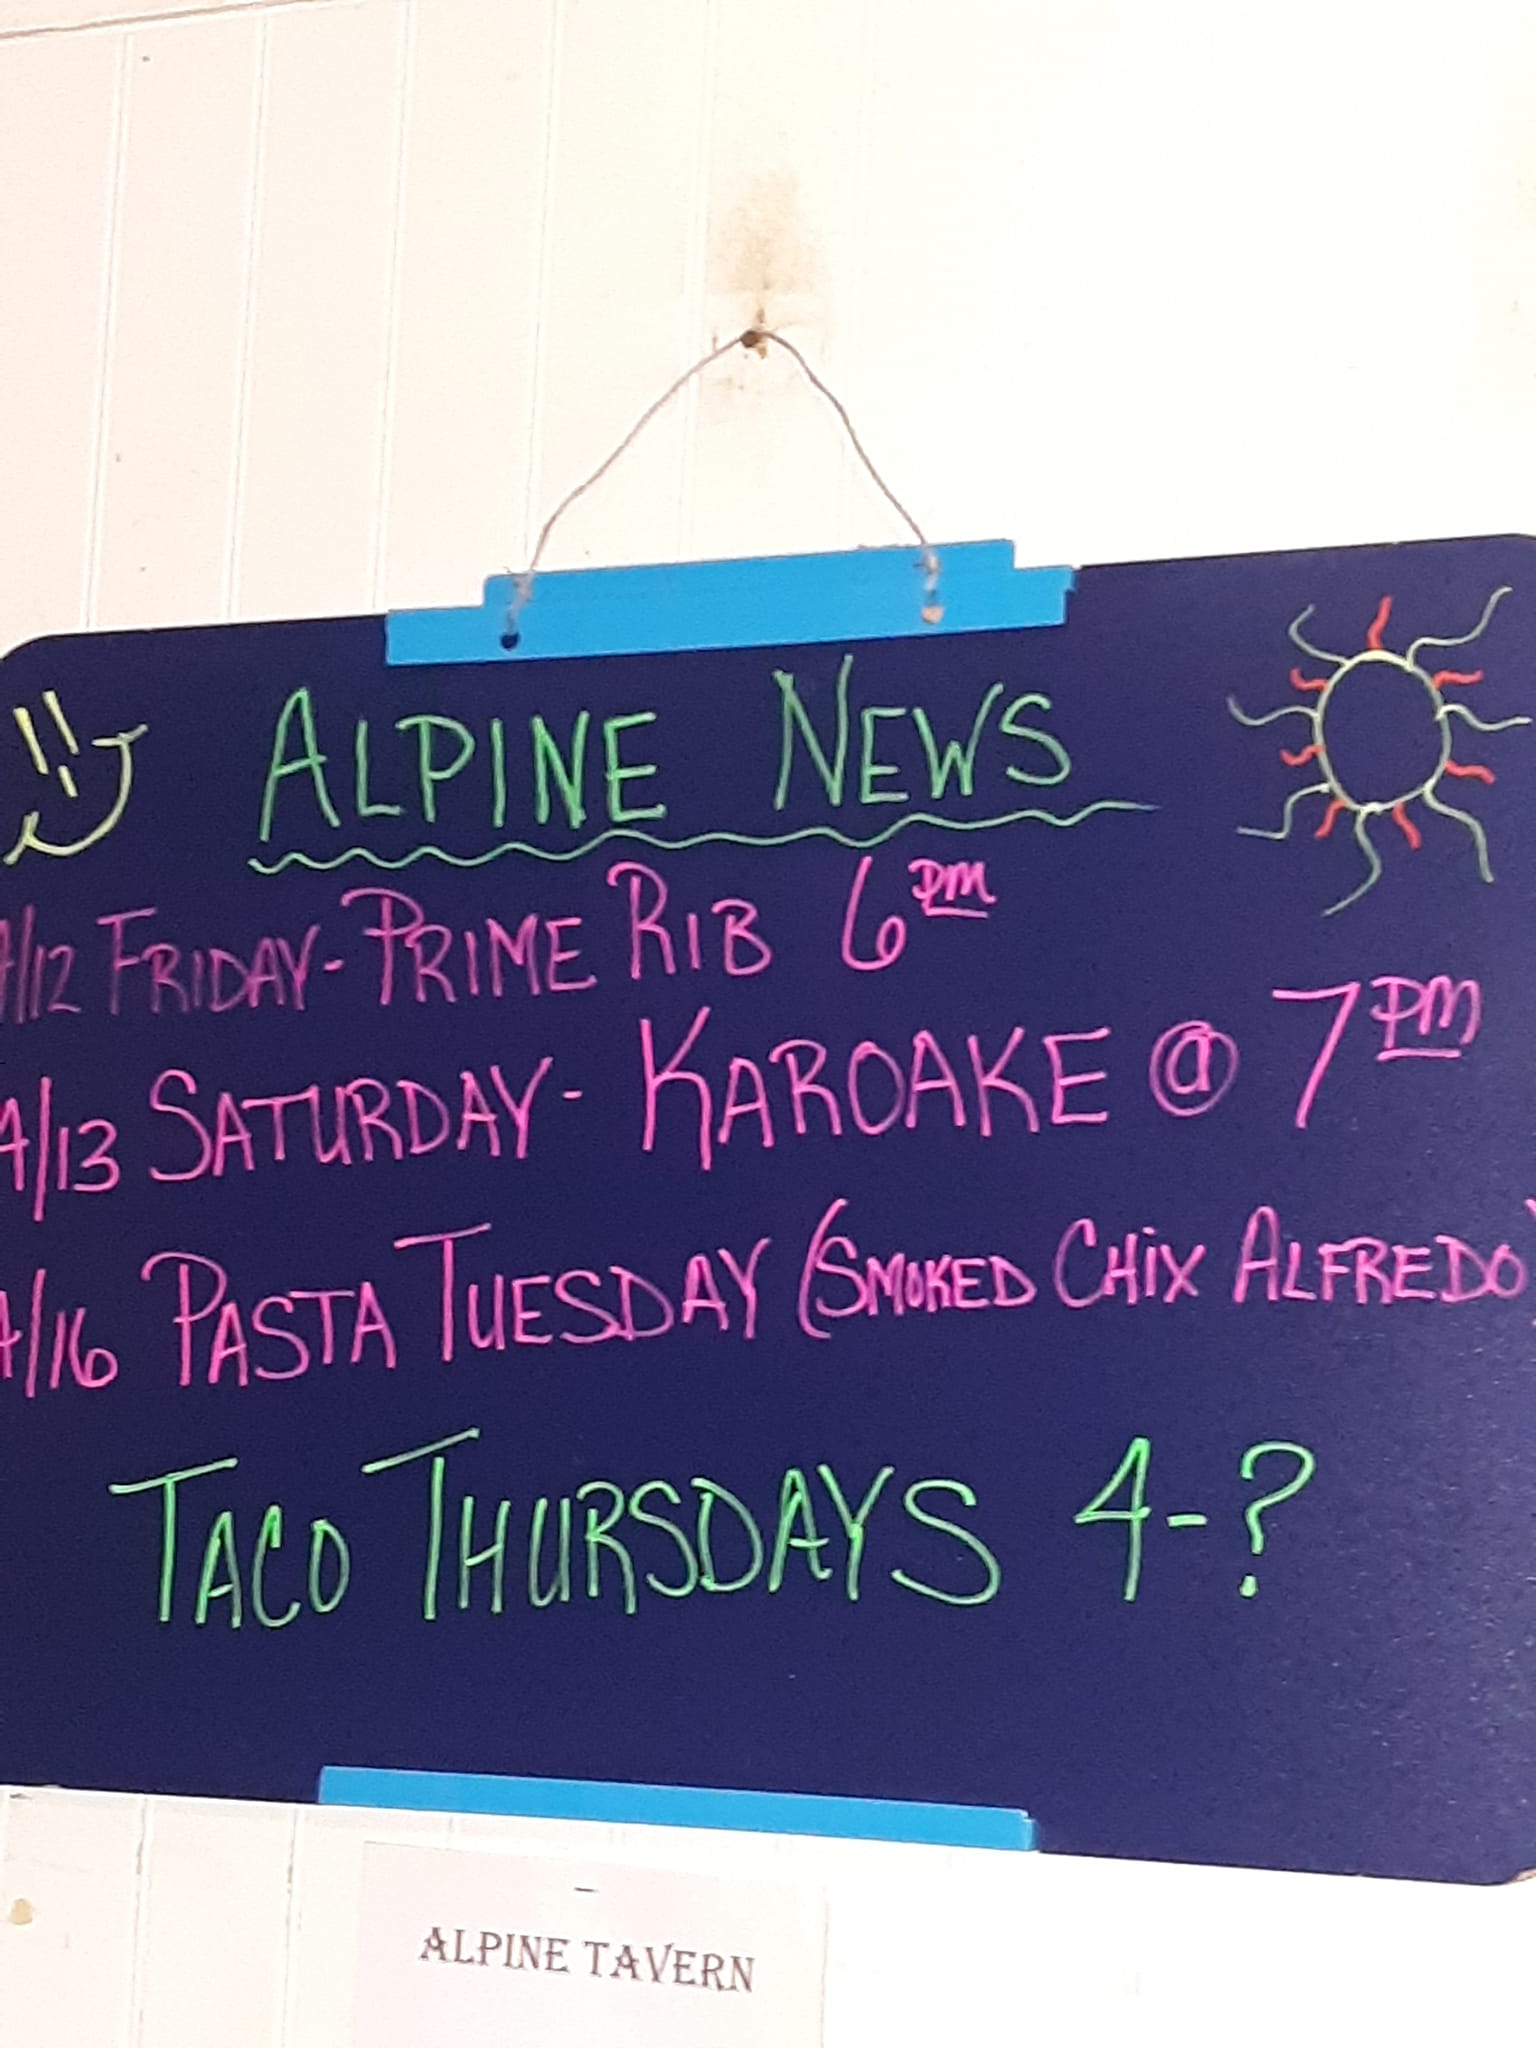 ALPINE NEWS
4/12 FRIDAY- PRIME RIB 6PM
4/13 SATURDAY- KAROAKE @ 7PM
4/16 PASTA TUESDAY (SMOKED CHIX ALFREDO)
TACO THURSDAYS 4-?
ALPINE TAVERN